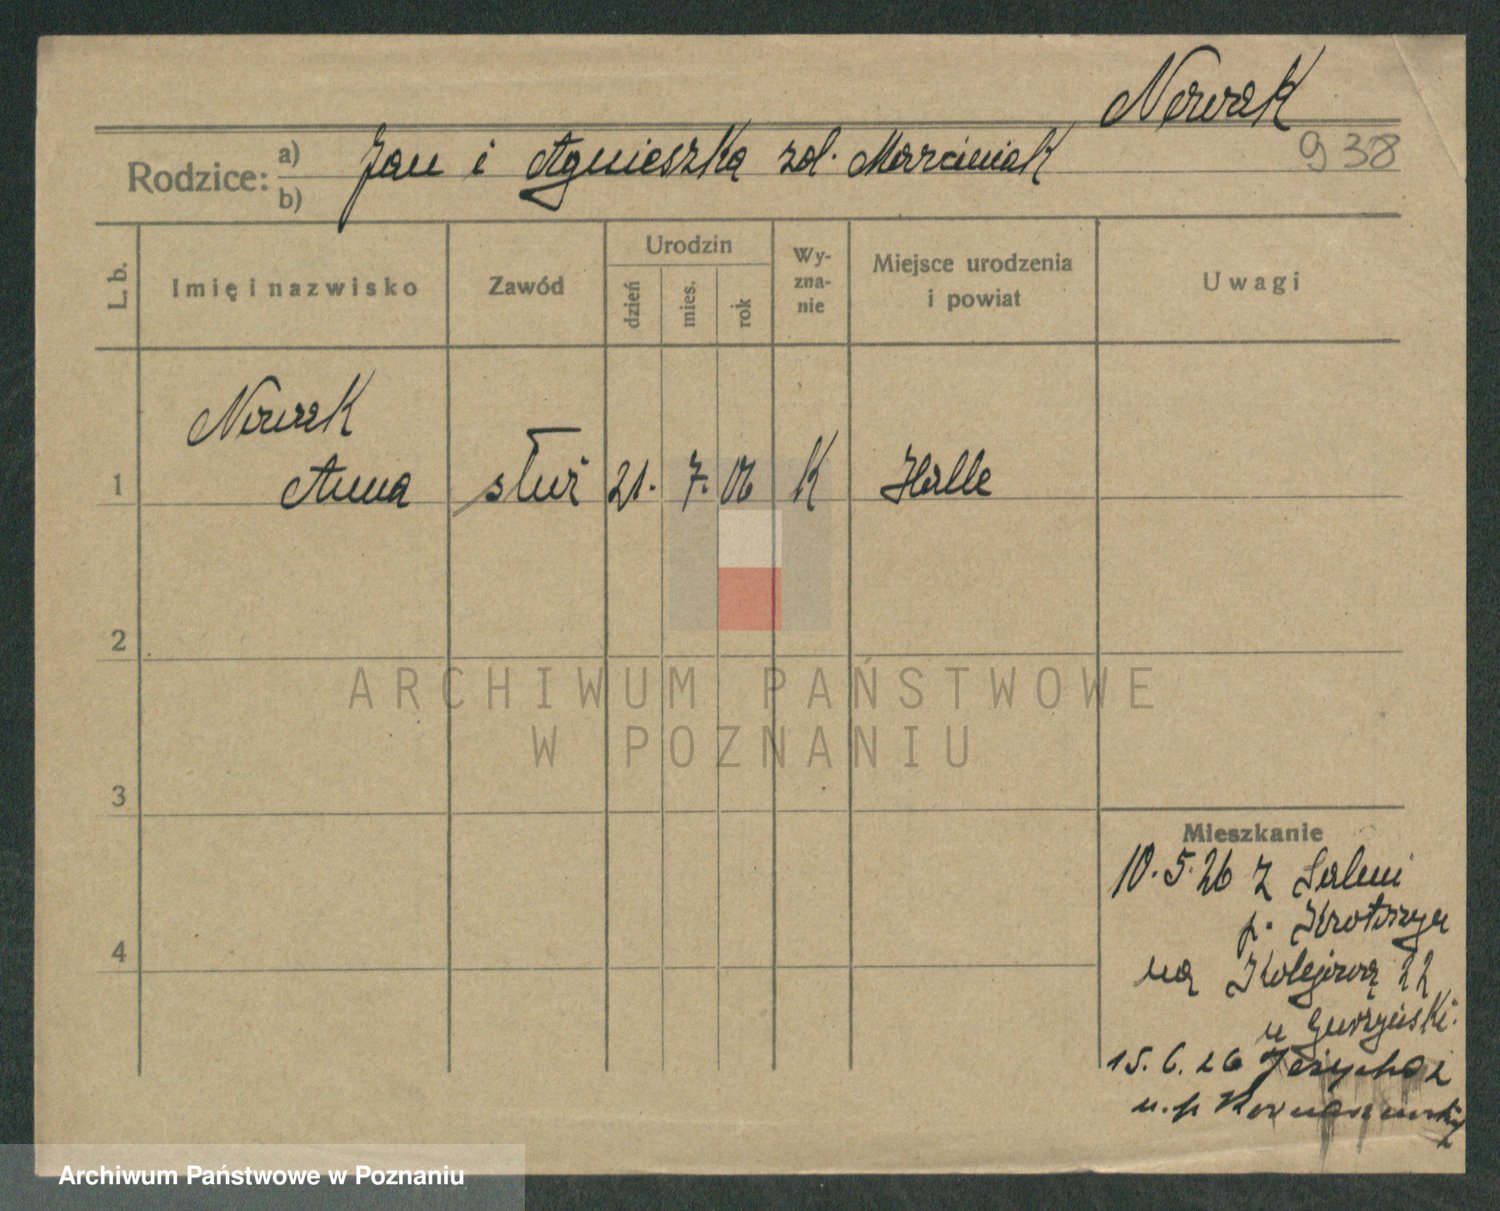 Nowak
938
Rodzice: a) b) Jan i Agnieszka zd. Marciniak
L. b.
Imię i nazwisko
Zawód
Urodzin
dzień
mies.
rok
Wy-
zna-
nie
Miejsce urodzenia
i powiat
Uwagi
Nowak
1 Anna służ 21. 7. 06 K Halle
2
ARCHIWUM PAŃSTWOWE
W POZNANIU
3
4
Mieszkanie
10.5.26 z
p. Krotoszyn
na Kolejową 22
u
15.6.26
u. p.
Archiwum Państwowe w Poznaniu